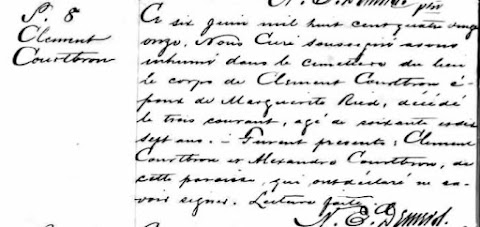 N. E. Demeid. ptre
S. 8
Clement
Courtbron
Ce six Juin mil huit cent quatre vingt
onze. Nous Curé soussigné avons
inhumé dans le cimetiere du lieu
le corps de Clement Courtbron é-
poux de Marguerite Ried, décédé
le trois courant, agé de soixante et dix
sept ans. - Furent presents: Clement
Courtbron et Alexandre Courtbron, de
cette paroisse, qui ont déclaré ne sa-
voir signer. Lecture faite.
N. E. Demeid.